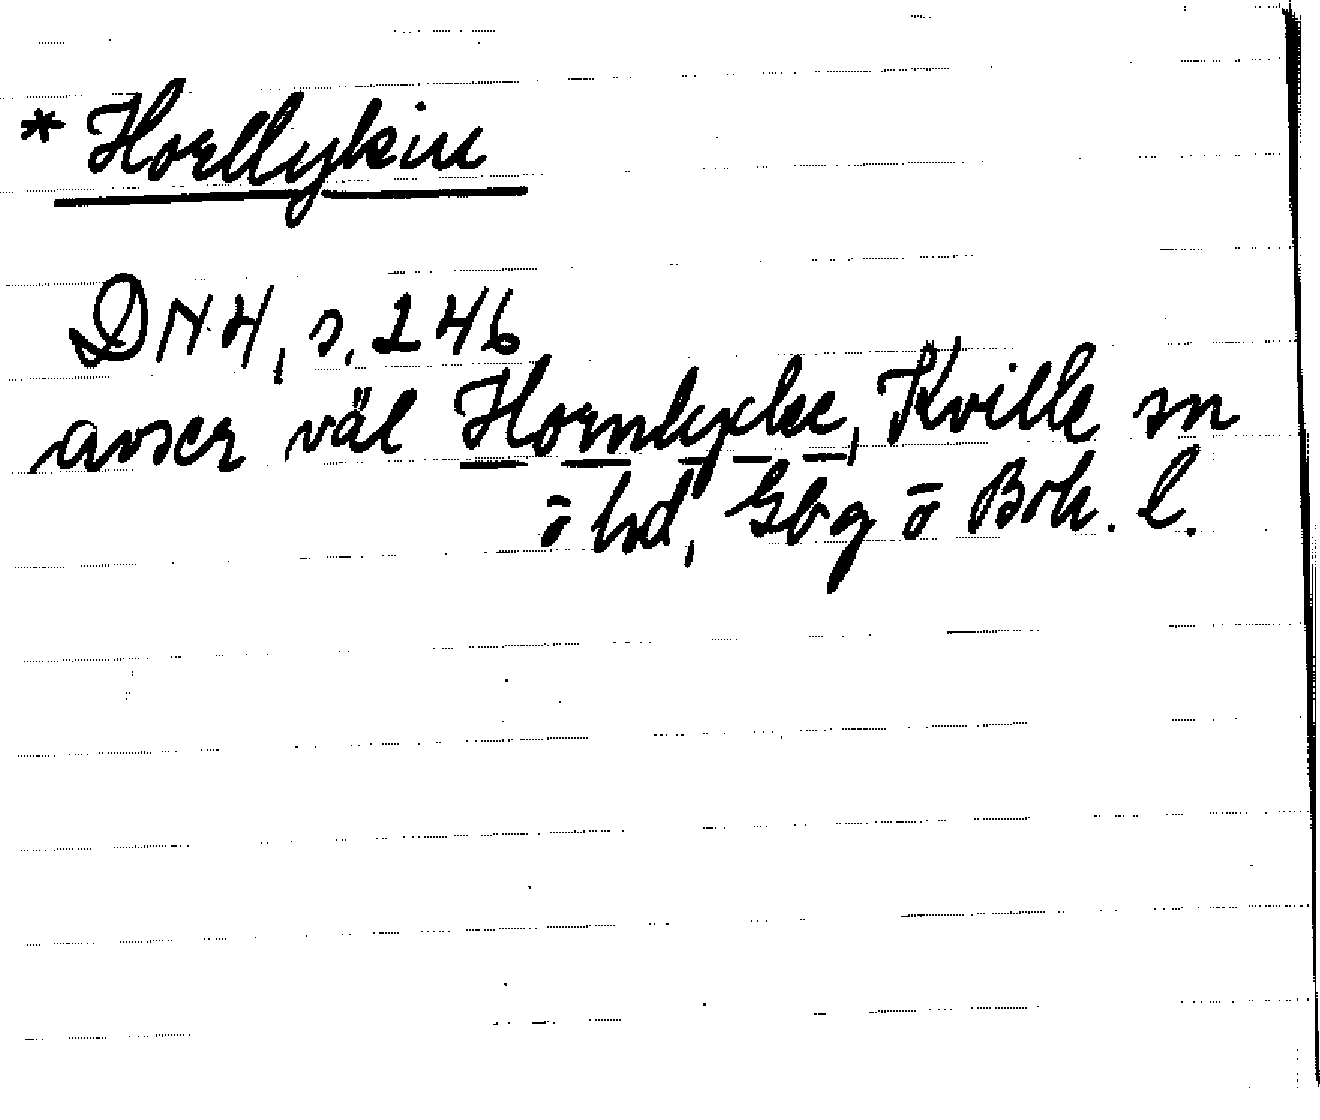 * Horllykin
DN 4, s. 246
avser väl Hornlycke, Kville sn
o hd, Gbg o Boh. l.